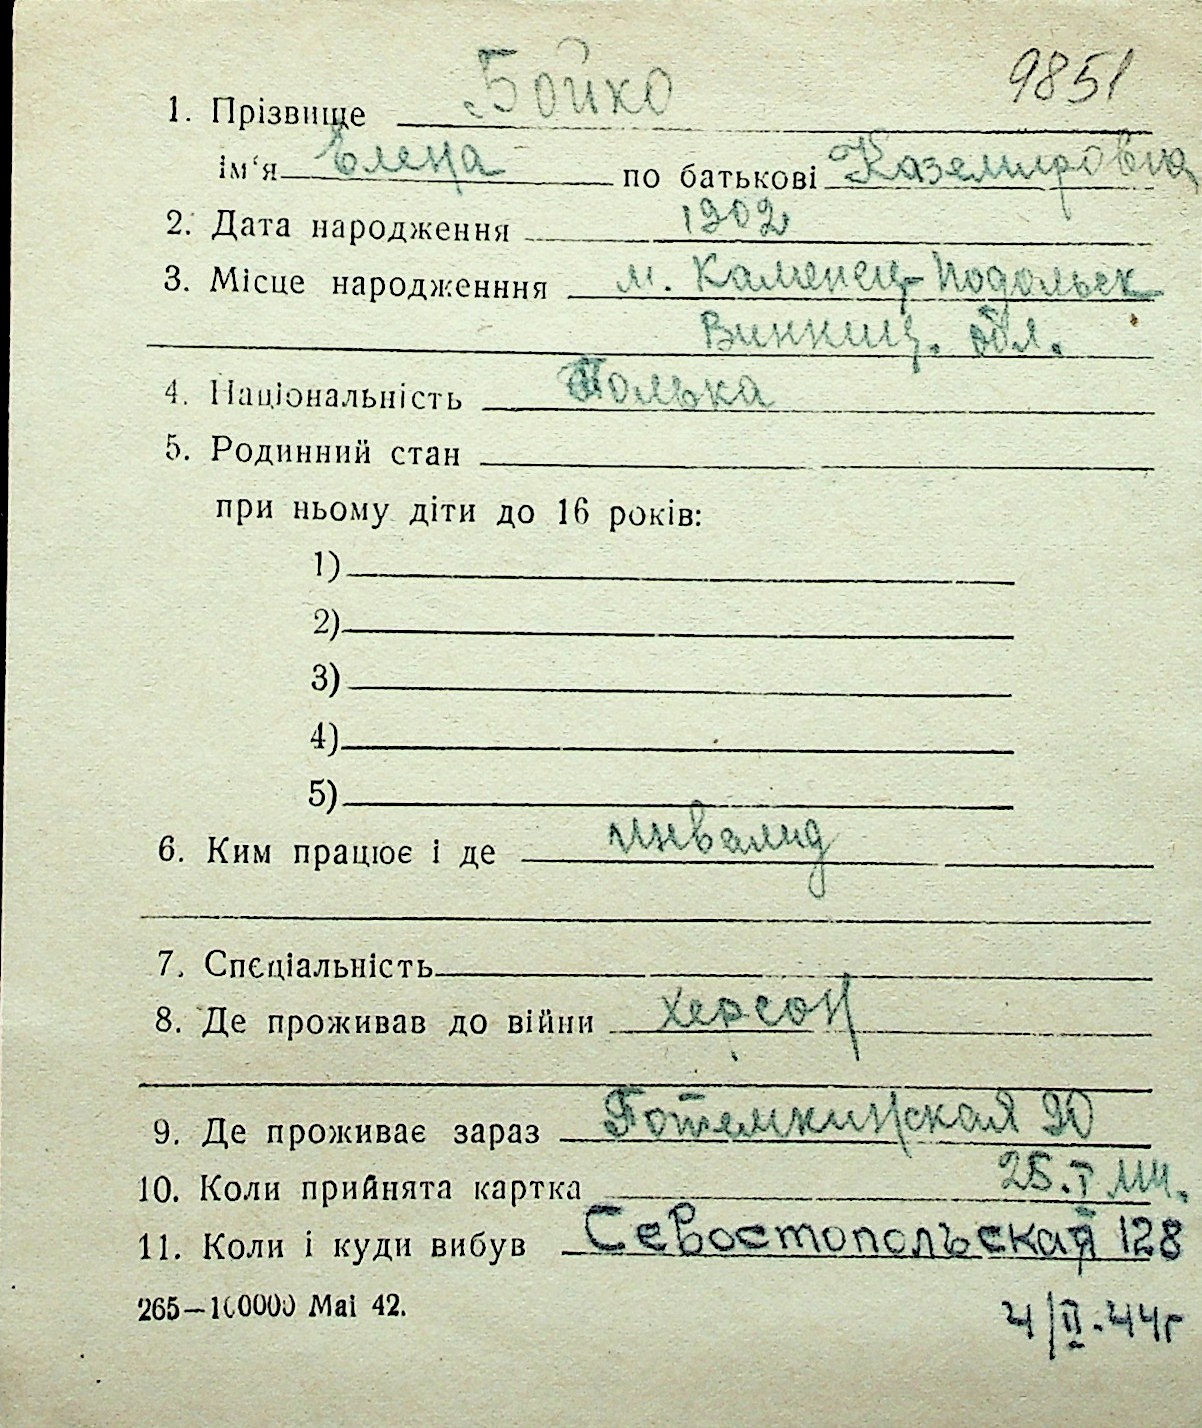 9851
1. Прізвище Бойко
ім'я Елена по батькові Каземировна
2. Дата народження 1902
3. Місце народженння м. Каменец-Подольск
Винниц. обл.
4. Національність Полька
5. Родинний стан
при ньому діти до 16 років:
1)
2)
3)
4)
5)
6. Ким працює і де инвалид
7. Спєціальність
8. Де проживав до війни Херсон
9. Де проживає зараз Потемкинская 90
10. Коли прийнята картка 25.I 44.
11. Коли і куди вибув Севостопольская 128
265—100000 Mai 42. 4/II.44г